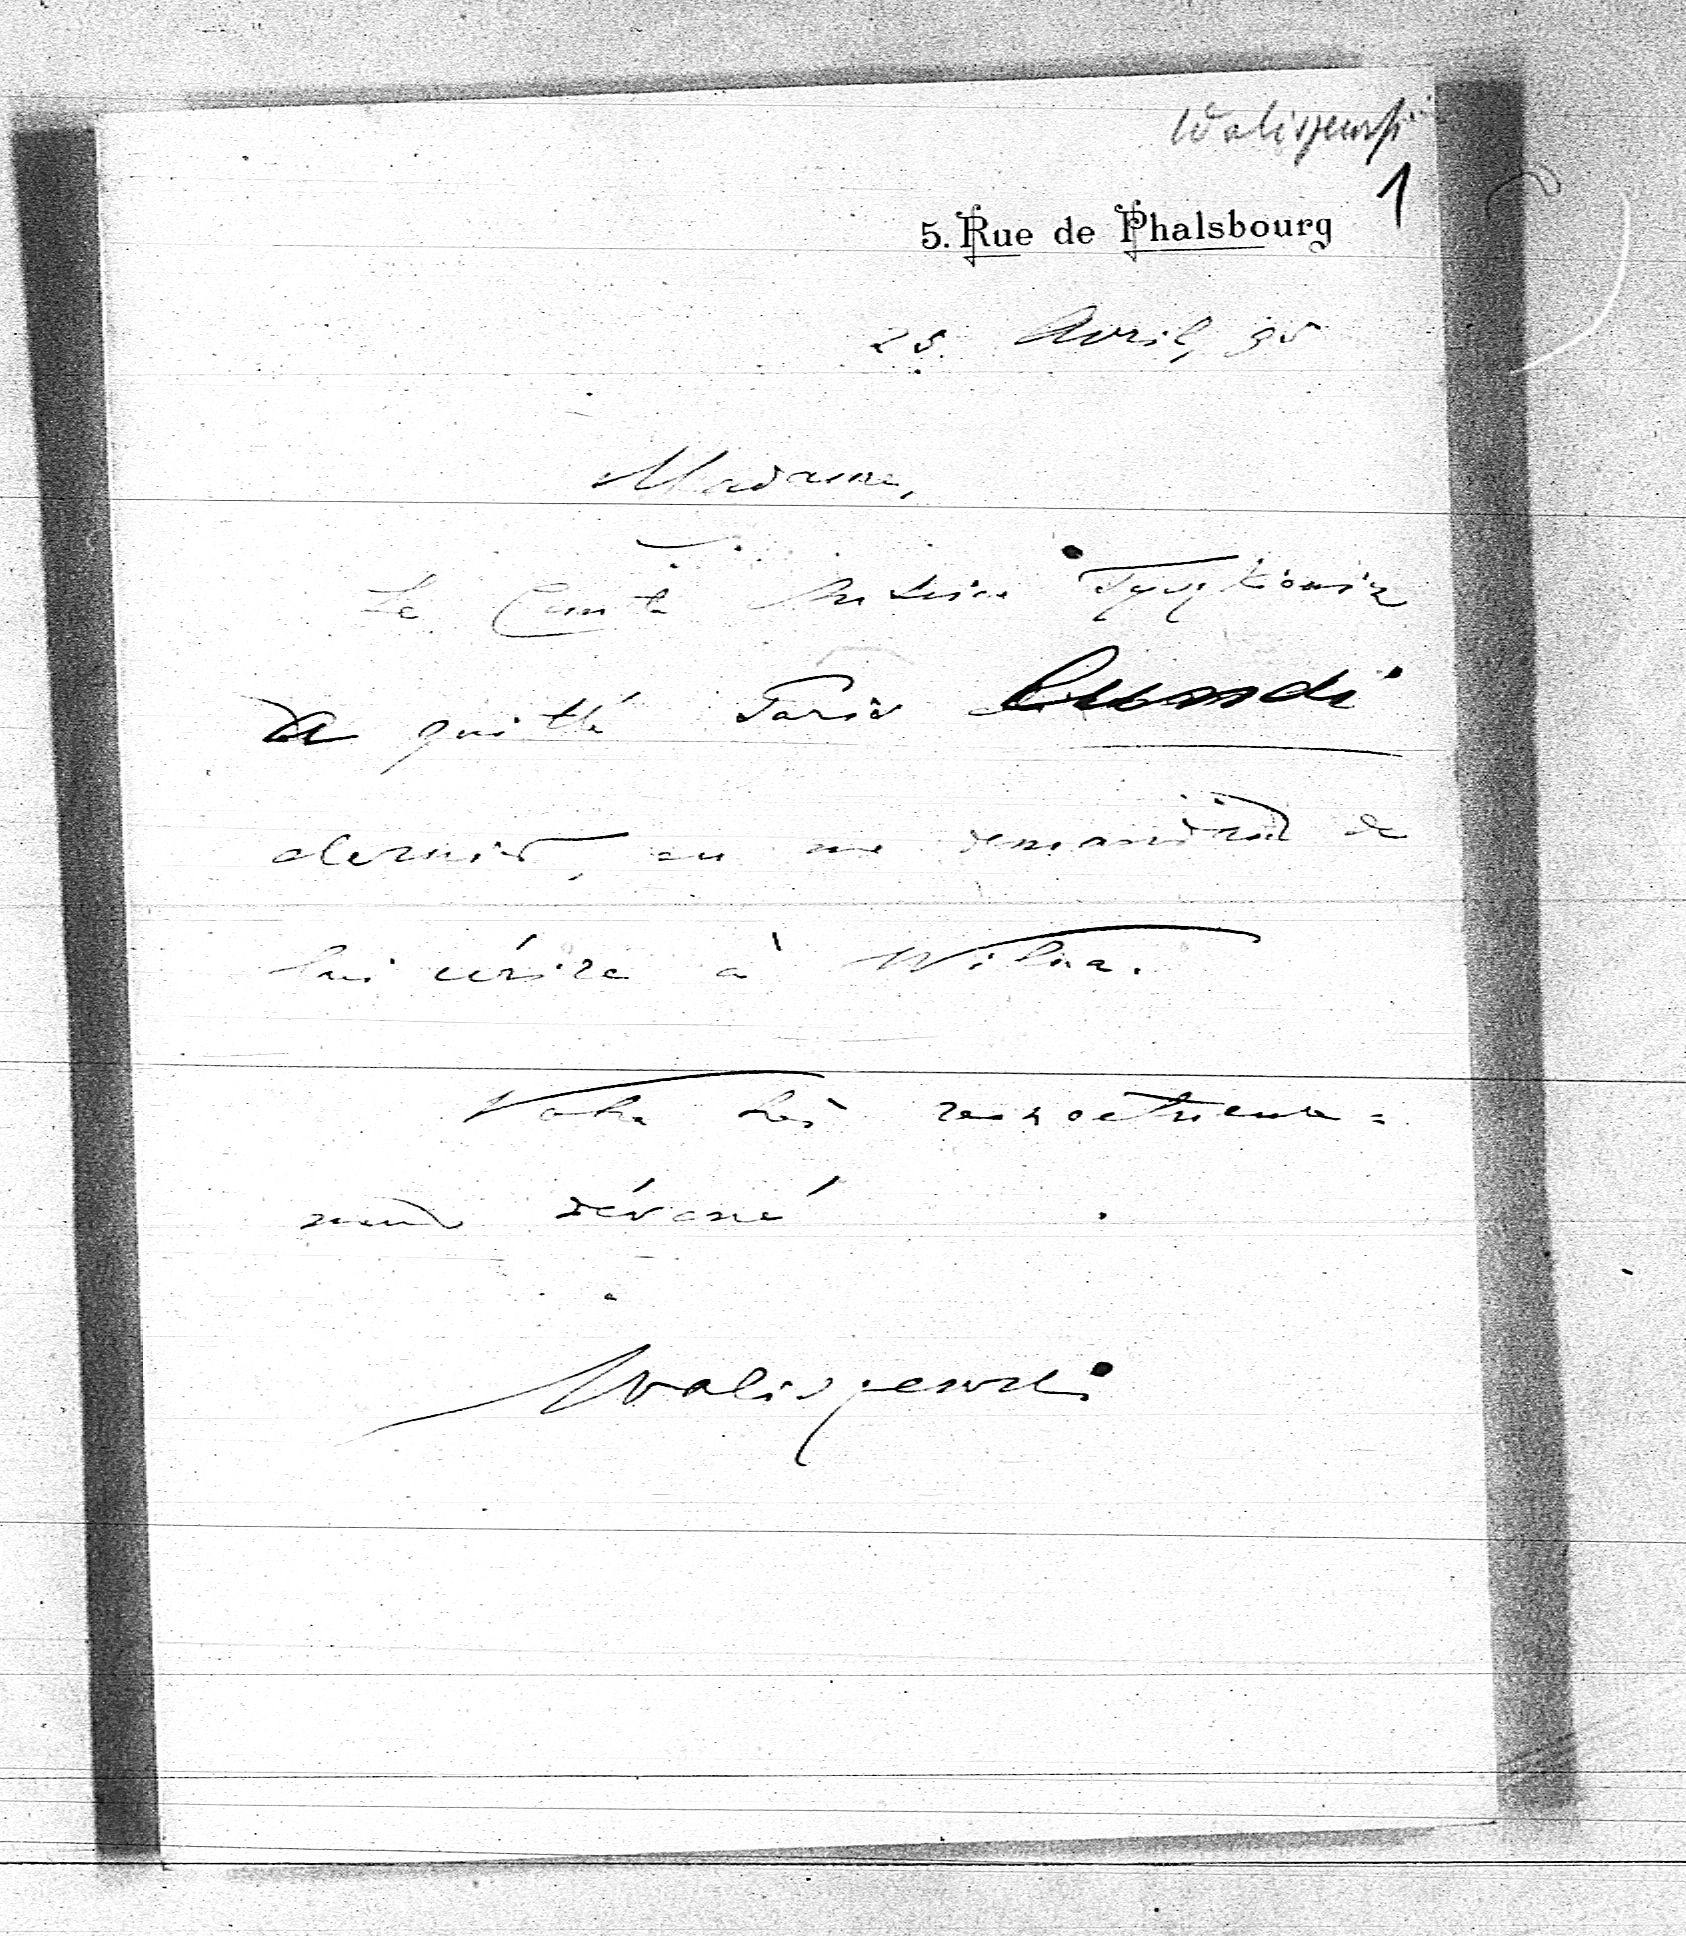 Waliszewski
1
5. Rue de Phalsbourg
25 Avril, 95
Madame,
Le Comte Antoine Tyszkiewicz
a quitté Paris Lundi
dernier, en me demandant de
lui écrire à Wilna.
Votre très respectueuse=
ment dévoué
Waliszewski